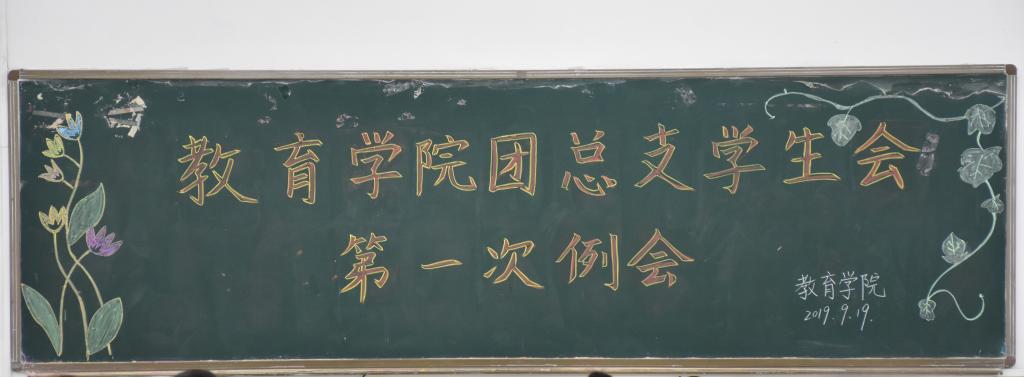 教育学院团总支学生会
第一次例会
教育学院
2019.9.19.